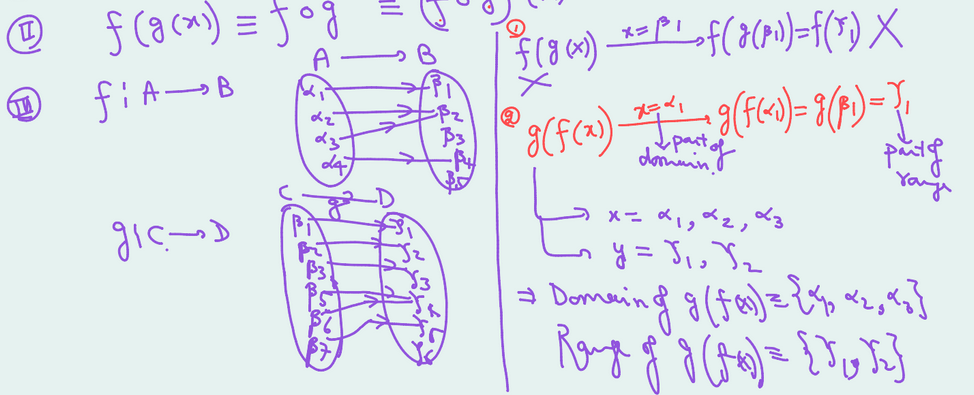 II f(g(x)) ≡ fog ≡ (fog)(x)
III f: A → B
A → B
α1 β1
α2 β2
α3 β3
α4 β4
β5
g: C → D
C → D
g
β1 γ1
β2 γ2
β3 γ3
β5 γ4
β6 γ5
β7 γ6
① f(g(x)) x=β1 → f(g(β1))=f(γ1) X
X
② g(f(x)) x=α1 → g(f(α1))=g(β1)=γ1
part of domain.
part of range
→ x = α1, α2, α3
y = γ1, γ2
⇒ Domain of g(f(x)) ≡ {α1, α2, α3}
Range of g(f(x)) ≡ {γ1, γ2}